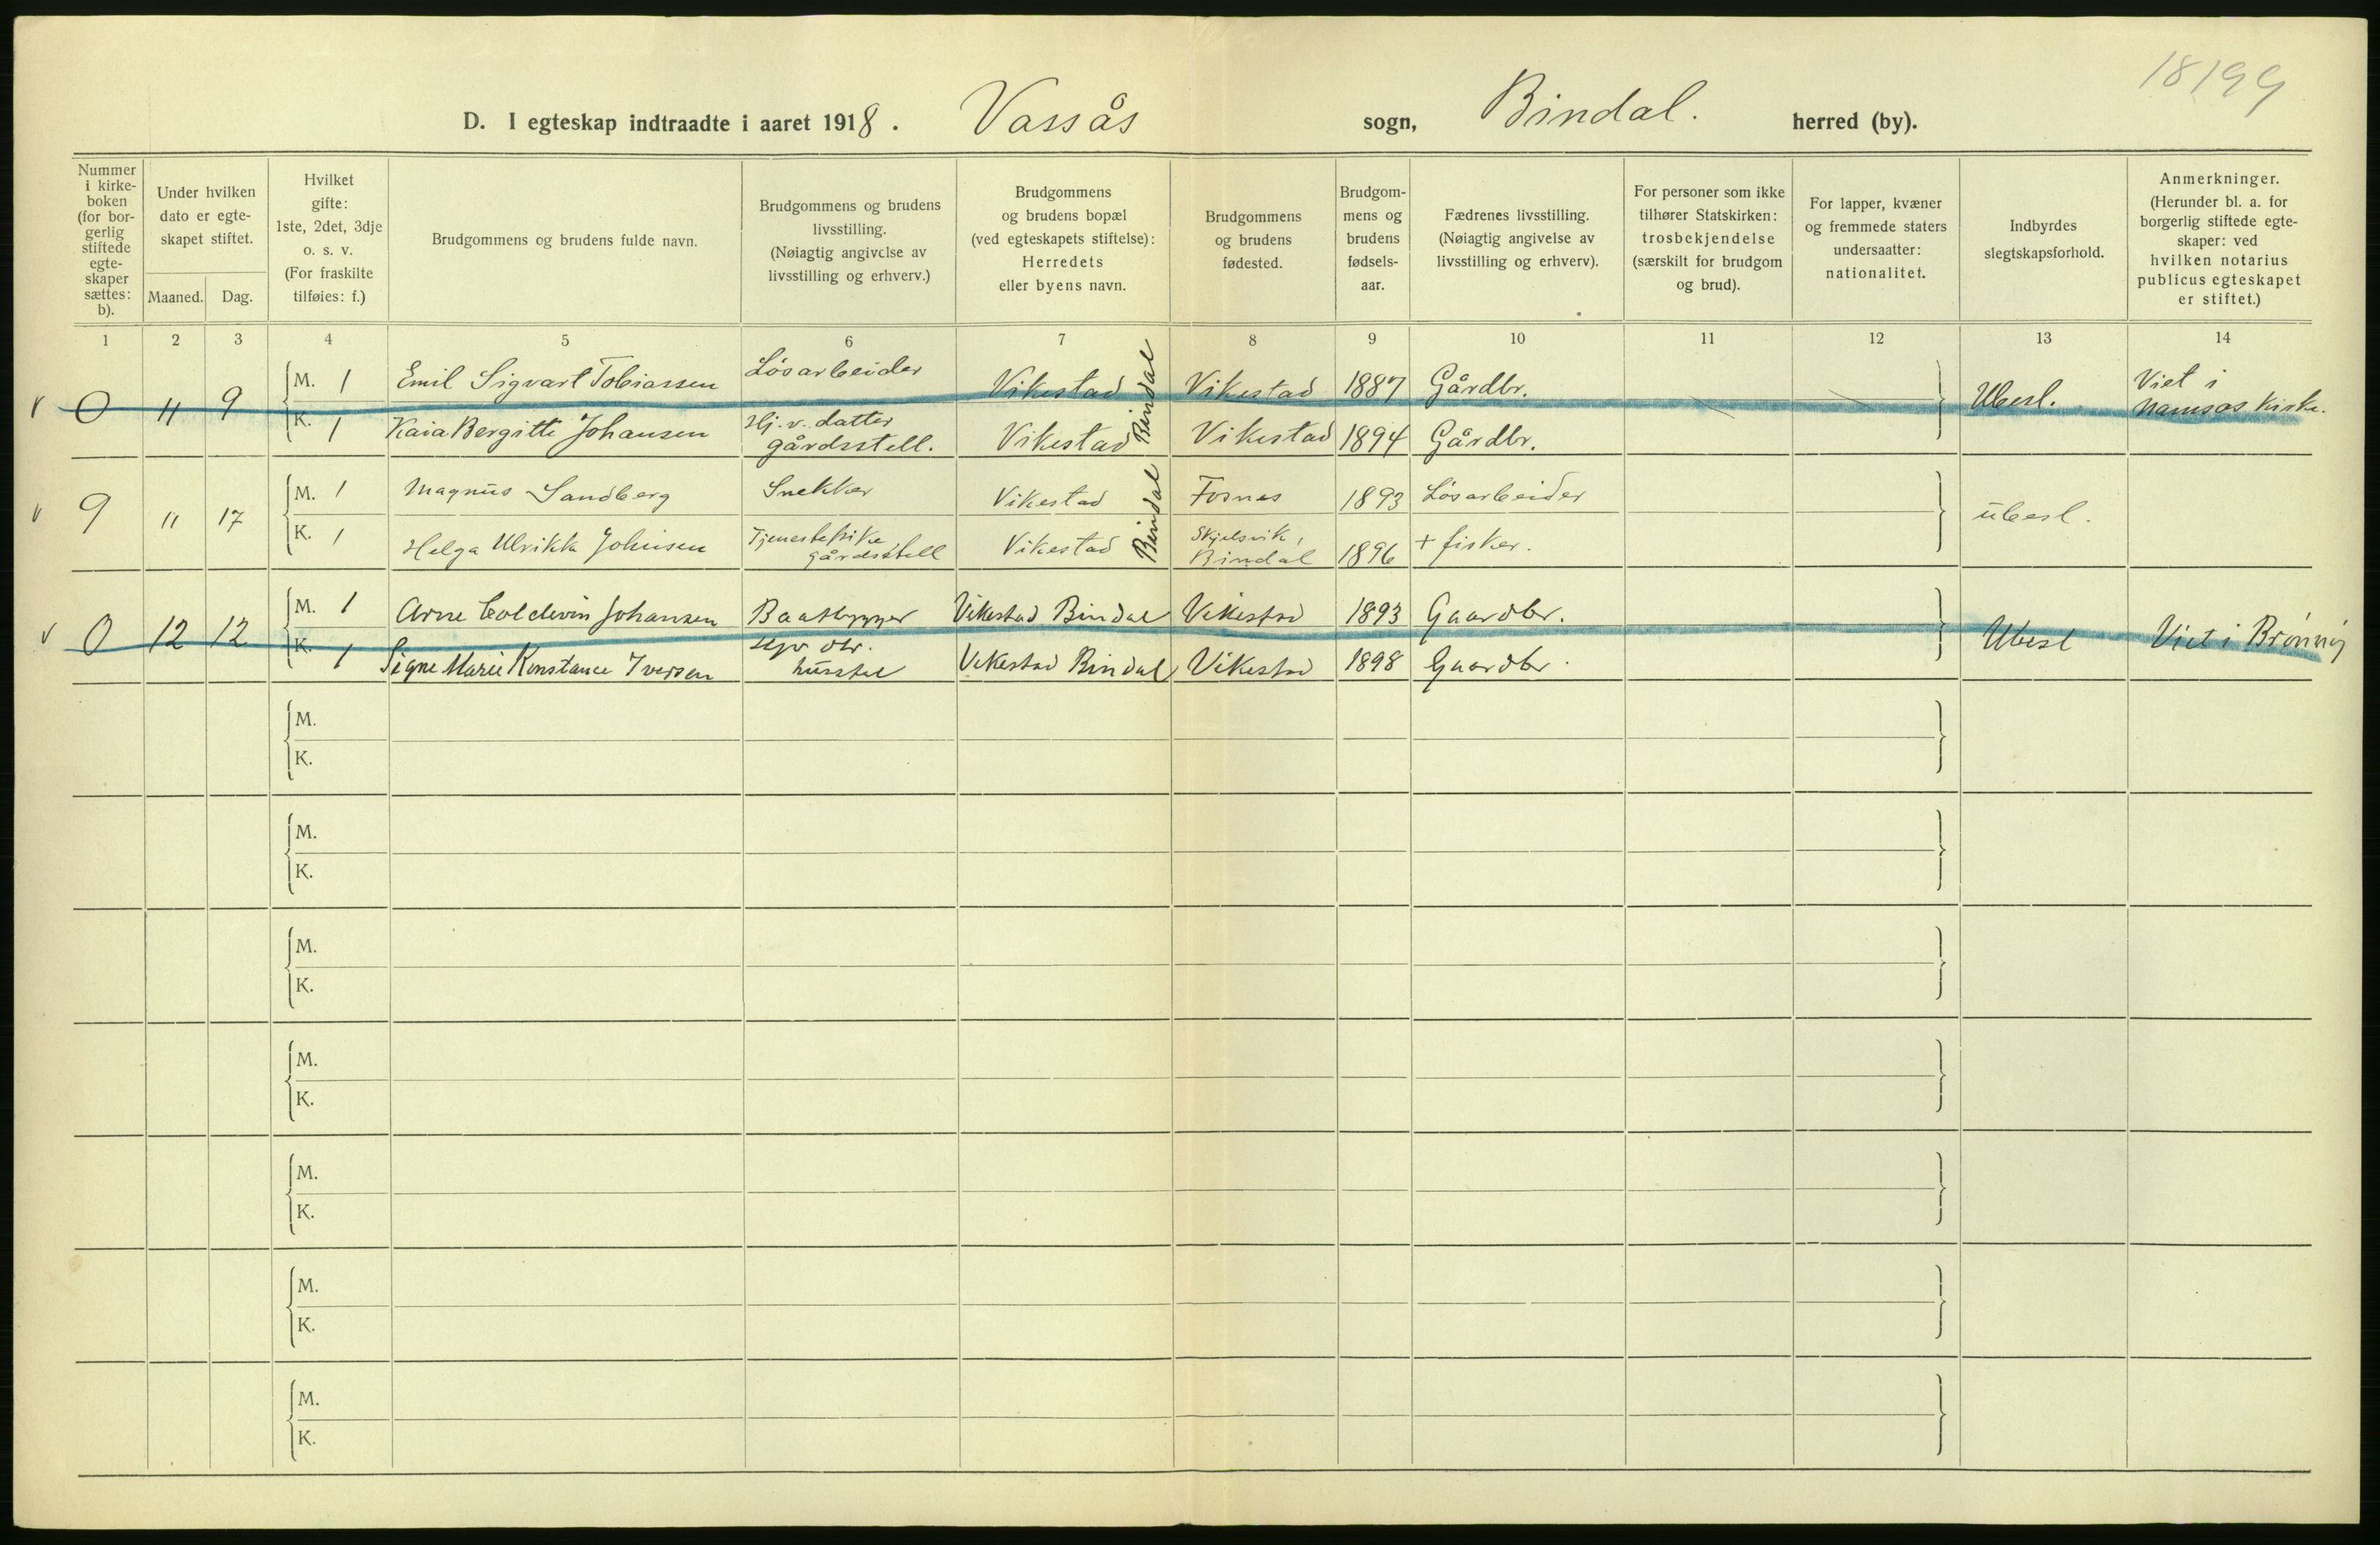 18199
D. I egteskap indtraadte i aaret 1918. Vassås sogn, Bindal. herred (by).
Nummer i kirke-boken (for bor-gerlig stiftede egte-skaper sættes: b).
Under hvilken dato er egte-skapet stiftet.
Maaned. Dag.
Hvilket gifte: 1ste, 2det, 3dje o. s. v. (For fraskilte tilføies: f.)
Brudgommens og brudens fulde navn.
Brudgommens og brudens livsstilling. (Nøiagtig angivelse av livsstilling og erhverv.)
Brudgommens og brudens bopæl (ved egteskapets stiftelse): Herredets eller byens navn.
Brudgommens og brudens fødested.
Brudgom-mens og brudens fødsels-aar.
Fædrenes livsstilling. (Nøiagtig angivelse av livsstilling og erhverv).
For personer som ikke tilhører Statskirken: trosbekjendelse (særskilt for brudgom og brud).
For lapper, kvæner og fremmede staters undersaatter: nationalitet.
Indbyrdes slegtskapsforhold.
Anmerkninger. (Herunder bl. a. for borgerlig stiftede egte-skaper: ved hvilken notarius publicus egteskapet er stiftet.)
1 2 3 4 5 6 7 8 9 10 11 12 13 14
v 0 11 9 M. 1 Emil Sigvart Tobiassen Løsarbeider Vikestad Bindal Vikestad 1887 Gårdbr. Ubesl. Viet i Namsos Kirke.
K. 1 Kaia Bergitte Johansen Hj. v. datter gårdsstell. Vikestad Vikestad 1894 Gårdbr.
v 9 11 17 M. 1 Magnus Sandberg Snekker Vikestad Bindal Fosnes 1893 Løsarbeider ubesl.
K. 1 Helga Ulrikka Johnsen Tjenestepike, gårdsstell Vikestad Skjelsvik, Bindal 1896 + fisker.
v 0 12 12 M. 1 Arne Coldevin Johansen Baatbygger Vikestad Bindal Vikestad 1893 Gaardbr. Ubesl Viet i Brønnøy
K. 1 Signe Marie Konstance Iversen husstel Vikestad Bindal Vikestad 1898 Gaardbr.
M.
K.
M.
K.
M.
K.
M.
K.
M.
K.
M.
K.
M.
K.